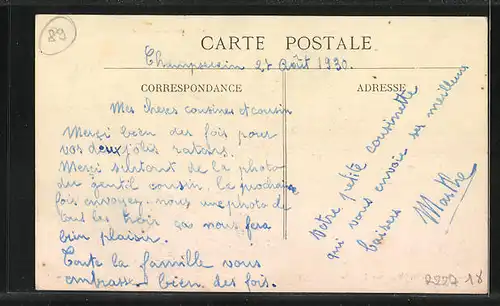 89
CARTE POSTALE
Champsecrin 27 Août 1930.
CORRESPONDANCE
ADRESSE
Mes cheres cousines et cousin
Merçi bien des fois pour
vos deux jolis
Merçi surtout de la photo
du gentil cousin, la prochaine
fois envoyez. nous une photo de
tous les trois ça nous fera
bien plaisir.
Toute la famille vous
embrasse bien des fois.
Votre petite cousinette
qui vous envoie ses meilleurs
baisers
Marthe